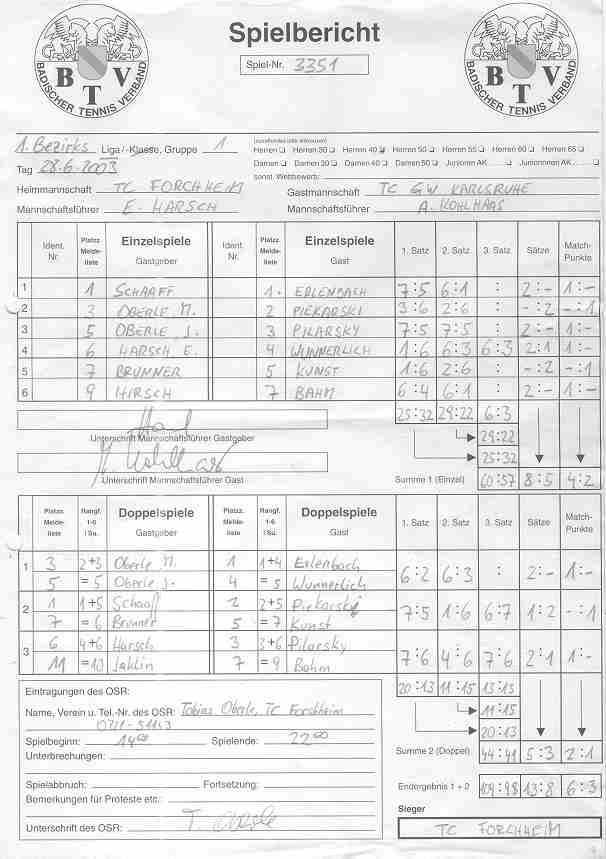 Spielbericht
BADISCHER TENNIS VERBAND
BTV
BADISCHER TENNIS VERBAND
BTV
Spiel-Nr. 3351
(zutreffendes bitte ankreuzen)
1. Bezirks Liga/-Klasse, Gruppe 1 Herren Herren 30 Herren 40 Herren 50 Herren 55 Herren 60 Herren 65
Tag 28.6.2003 Damen Damen 30 Damen 40 Damen 50 Junioren AK Juniorinnen AK
sonst. Wettbewerb:
Heimmannschaft TC FORCHHEIM Gastmannschaft TC GW KARLSRUHE
Mannschaftsführer E. HARSCH Mannschaftsführer A. KOHLHAAS
Ident. Nr. Platzz. Melde- liste Einzelspiele Gastgeber Ident. Nr. Platzz. Melde- liste Einzelspiele Gast 1. Satz 2. Satz 3. Satz Sätze Match- Punkte
1 1 SCHAAFF 1. ERLENBACH 7:5 6:1 : 2:- 1:-
2 3 OBERLE, M. 2 PIEKARSKI 3:6 2:6 : -:2 -:1
3 5 OBERLE, J. 3 PILARSKY 7:5 7:5 : 2:- 1:-
4 6 HARSCH E. 4 WUNNERLICH 1:6 6:3 6:3 2:1 1:-
5 7 BRUNNER 5 KUNST 1:6 2:6 : -:2 -:1
6 9 HIRSCH 7 BAHM 6:4 6:1 : 2:- 1:-
25:32 29:22 6:3
Unterschrift Mannschaftsführer Gastgeber 29:22
25:32
Unterschrift Mannschaftsführer Gast Summe 1 (Einzel) 60:57 8:5 4:2
Platzz. Melde- liste Rangf. 1-6 / Su. Doppelspiele Gastgeber Platzz. Melde- liste Rangf. 1-6 / Su. Doppelspiele Gast 1. Satz 2. Satz 3. Satz Sätze Match- Punkte
1 3 2+3 Oberle, M. 1 1+4 Erlenbach
5 =5 Oberle, J. 4 =5 Wunnerlich 6:2 6:3 : 2:- 1:-
2 1 1+5 Schaaff 2 2+5 Piekarski
7 =6 Brunner 5 =7 Kunst 7:5 1:6 6:7 1:2 -:1
3 6 4+6 Harsch 3 3+6 Pilarsky
11 =10 7 =9 Bahm 7:6 4:6 7:6 2:1 1:-
20:13 11:15 13:13
Eintragungen des OSR: 11:15
Name, Verein u. Tel.-Nr. des OSR: Tobias Oberle, TC Forchheim
20:13
Spielbeginn: 1400 Spielende: 2200
Summe 2 (Doppel) 44:41 5:3 2:1
Unterbrechungen:
Spielabbruch: Fortsetzung: Endergebnis 1 + 2 109:98 13:8 6:3
Bemerkungen für Proteste etc.:
Sieger
Unterschrift des OSR: T. Oberle TC FORCHHEIM